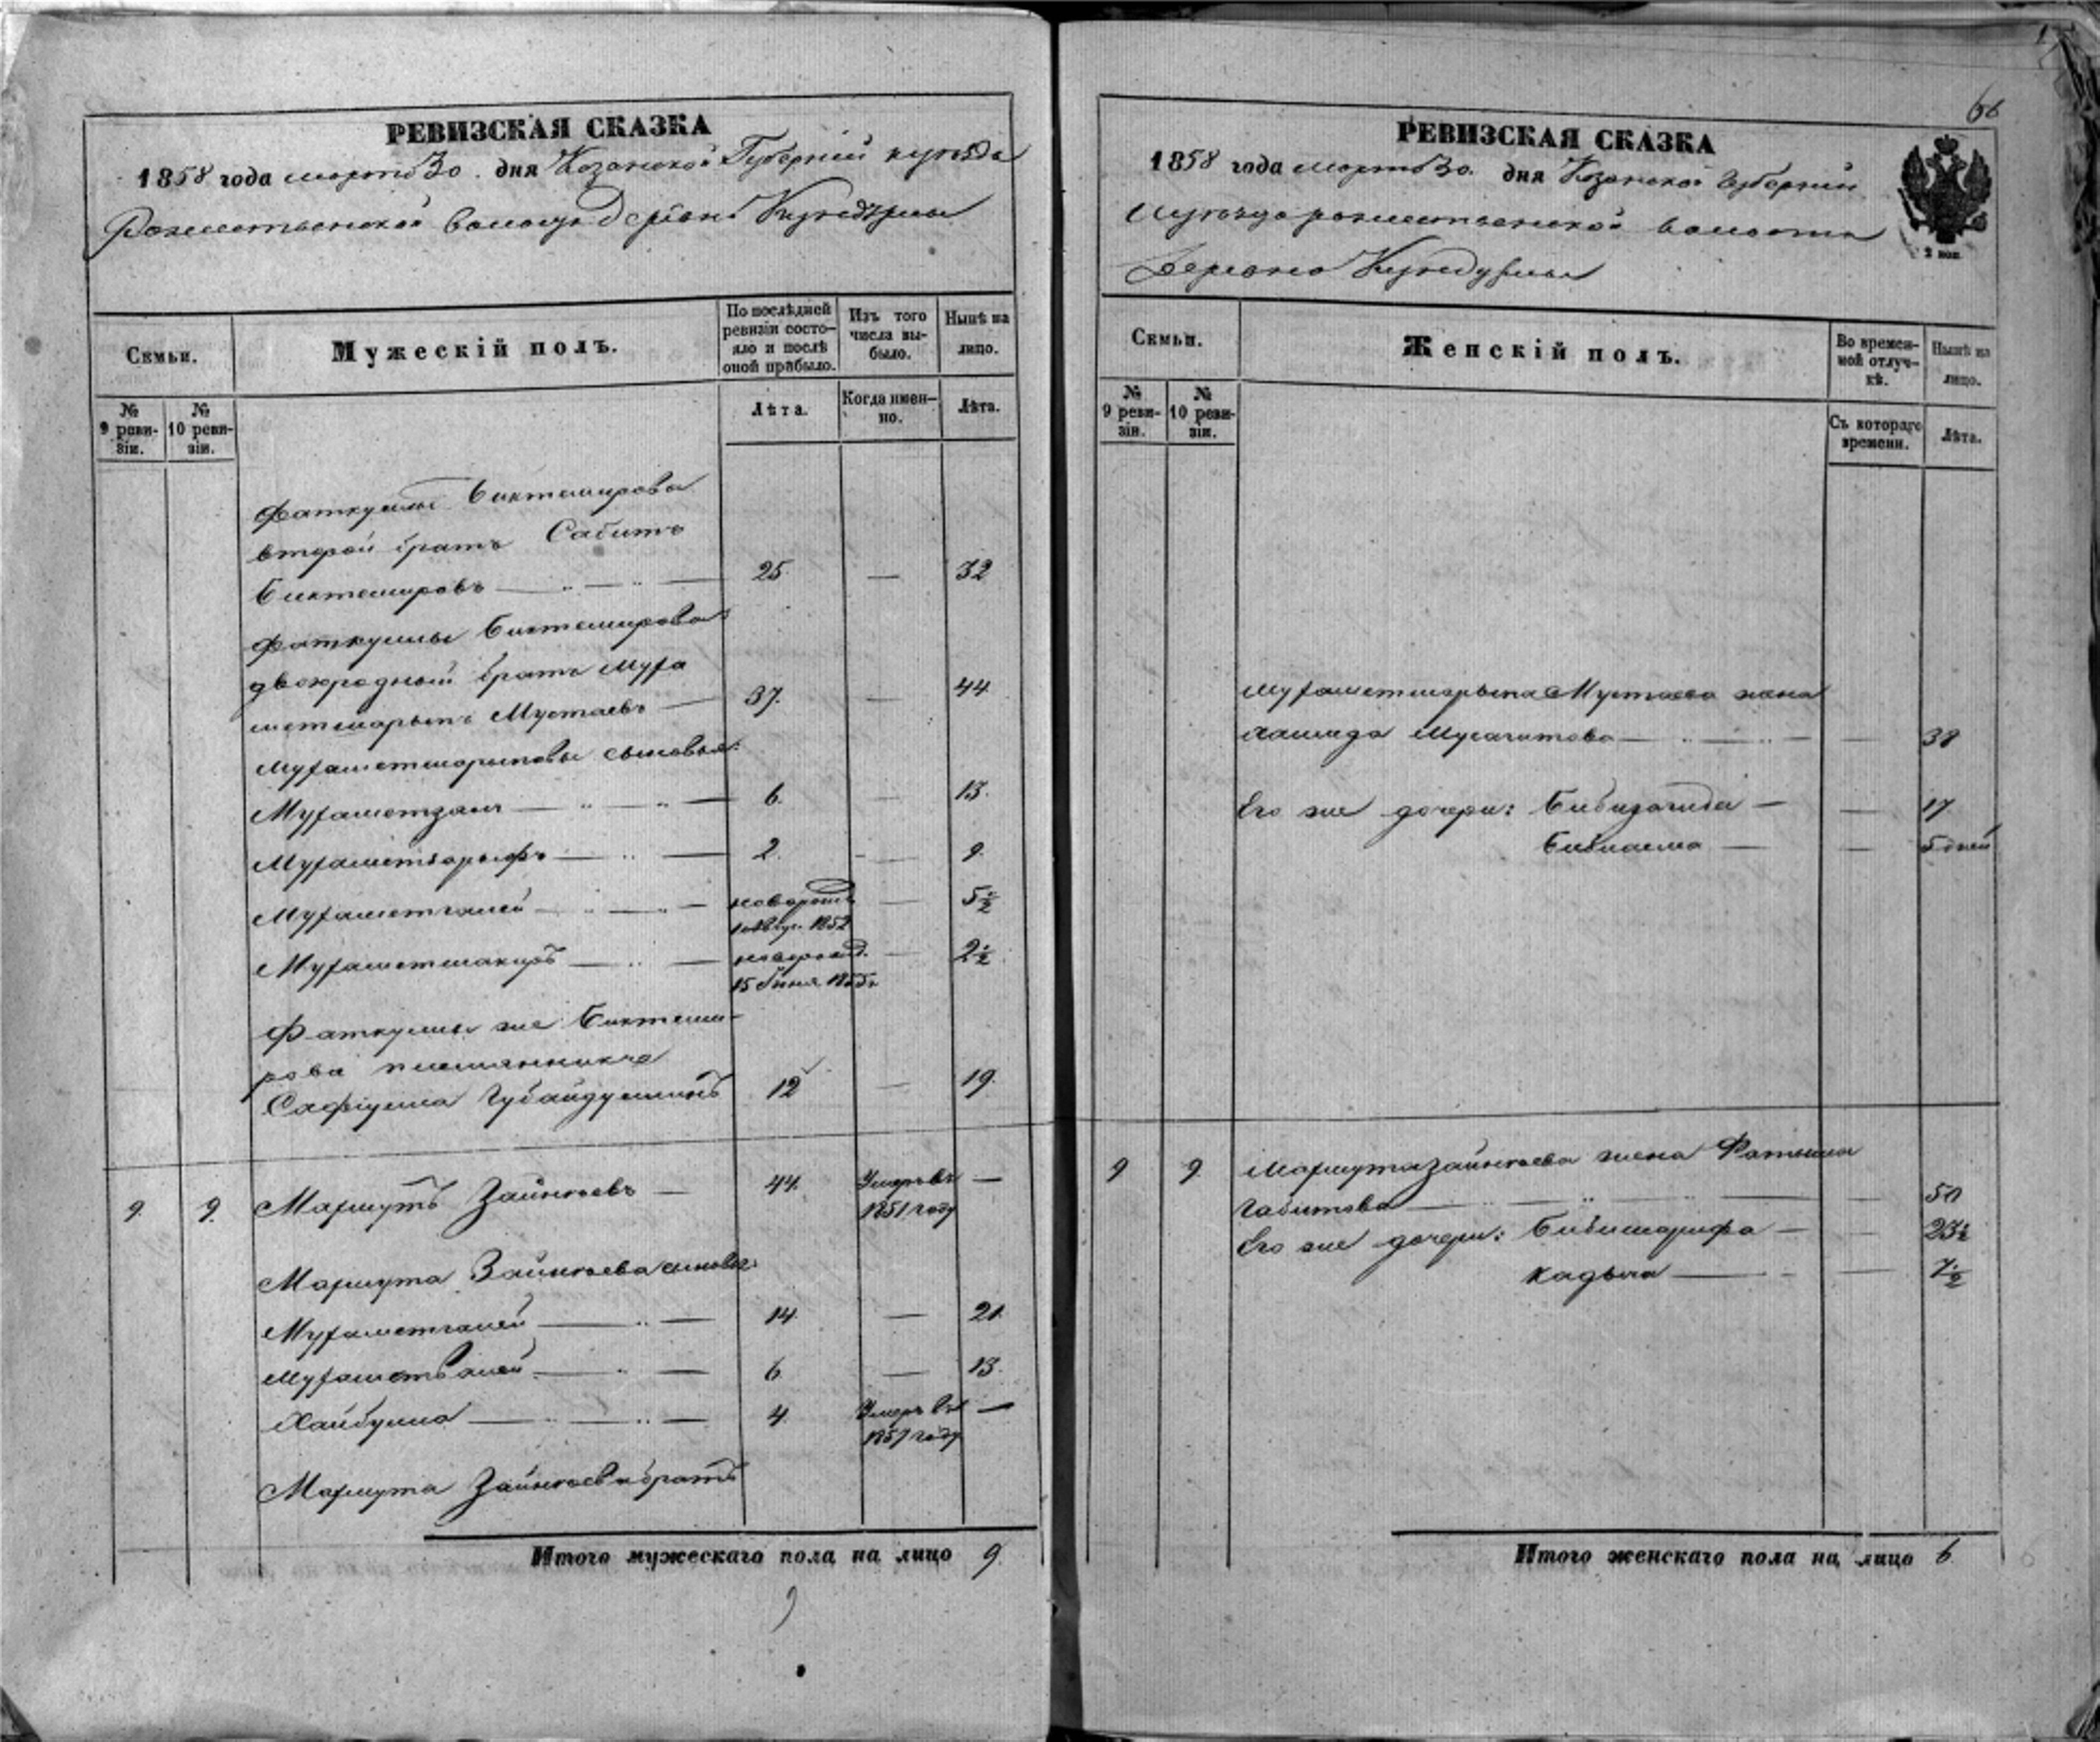 РЕВИЗСКАЯ СКАЗКА
1858 года марта 30. дня Казанской Губернии уезда
Рожественской волости Деревни
Семьи.
Мужескій полъ.
По послѣдней ревизіи состояло и послѣ оной прибыло.
Изъ того числа выбыло.
Нынѣ на лицо.
№ 9 ревизіи.
№ 10 ревизіи.
Лѣта.
Когда именно.
Лѣта.
Фаткуллы Биктемирова
второй братъ Сабитъ
Биктемировъ — 25. — 32
Фаткуллы Биктемирова
двоюродный братъ Муха
метшарыпъ Мустаевъ — 37. — 44
Мухаметшарыповы сыновья:
Мухаметзянъ — 6. — 13.
Мухаметзарыфъ — 2. — 9.
Мухаметгалей — новорожд. — 5 1/2
1852
Мухаметшакиръ — новорожд. — 2 1/2
15 Iюня 1855
Фаткуллы же Биктеми-
рова племянникъ
Сафіулла Губайдуллинъ 12 — 19.
9. 9. Махмутъ — 44. Умеръ въ —
1851 году
Махмута сыновья:
Мухаметгалей — 14. — 21.
Мухаметвалей — 6 — 13.
Хайбулла — 4. Умеръ въ —
1857 году
Махмута братъ
Итого мужескаго пола на лицо 9.
66
РЕВИЗСКАЯ СКАЗКА
1858 года марта 30. дня Казанской Губерніи
уезда рожественской волости
Деревни
2 коп.
Семьи.
Женскій полъ.
Во временной отлучкѣ.
Нынѣ на лицо.
№ 9 ревизіи.
№ 10 ревизіи.
Съ котораго времени.
Лѣта.
Мухаметшарыпа Мустаева жена
Мусагитова — — 38
Его же дочери: Бибизагида — — 17
— — 5 дней
9 9. Махмута жена Фатыма
Габитова — — 50
Его же дочери: Бибишарифа — — 23 1/2
Кадыча — — 7 1/2
Итого женскаго пола на лицо 6